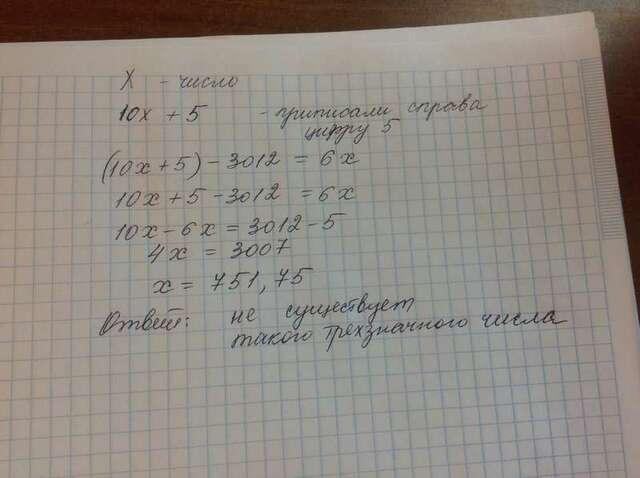 X - число
10x + 5 - приписали справа
цифру 5
(10x+5) - 3012 = 6x
10x + 5 - 3012 = 6x
10x - 6x = 3012 - 5
4x = 3007
x = 751,75
Ответ: не существует
такого трехзначного числа